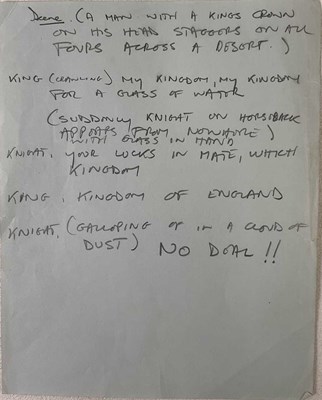 Scene. (A MAN WITH A KINGS CROWN
ON HIS HEAD STAGGERS ON ALL
FOURS ACROSS A DESERT.)
KING (CRAWLING) MY KINGDOM, MY KINGDOM
FOR A GLASS OF WATER
(SUDDENLY KNIGHT ON HORSEBACK
APPEARS (FROM NOWHERE)
WITH GLASS IN HAND
KNIGHT. YOUR LUCKS IN MATE, WHICH
KINGDOM
KING. KINGDOM OF ENGLAND
KNIGHT. (GALLOPING OF IN A CLOUD OF
DUST) NO DEAL !!